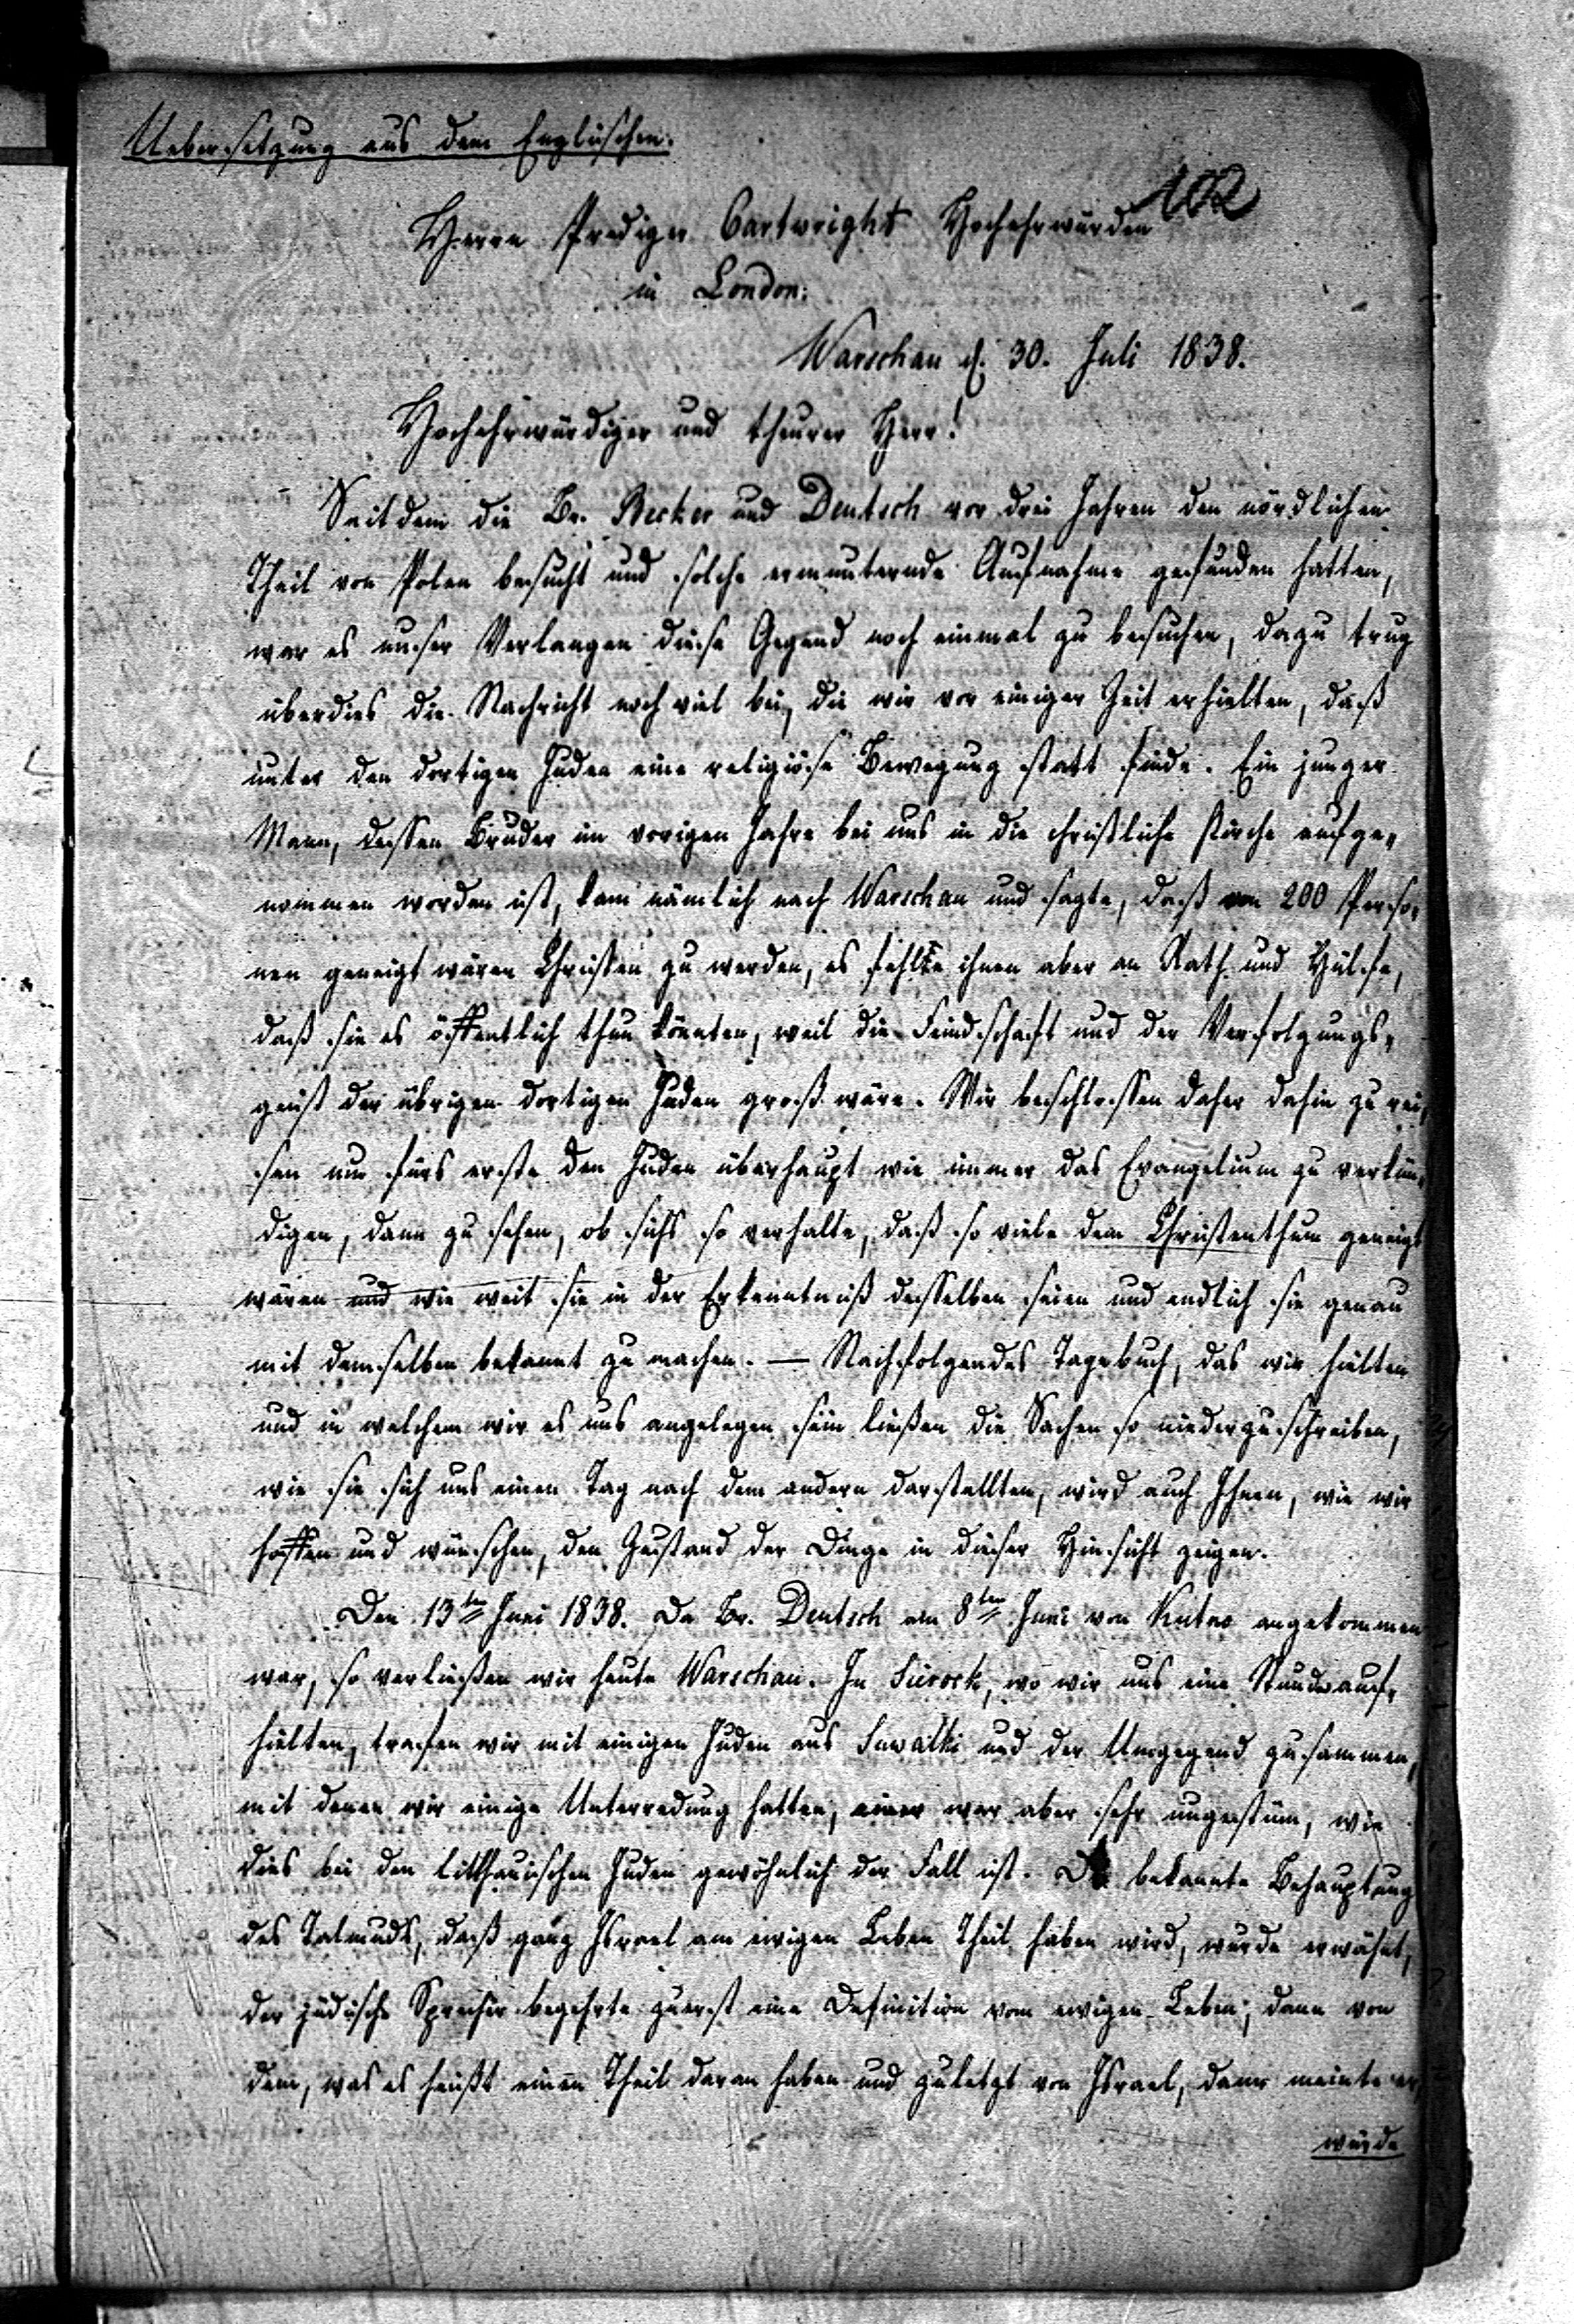 Uebersetzung aus dem Englischen.
102
Herrn Prediger Cartwright Hochehrwürden
in London.
Warschau d. 30. Juli 1838.
Hochehrwürdiger und theurer Herr!
Seitdem die Br. Becker und Deutsch vor drei Jahren den nördlichen
Theil von Polen besucht und solche ermunternde Aufnahme gefunden hatten,
war es unser Verlangen diese Gegend noch einmal zu besuchen, dazu trug
überdies die Nachricht noch viel bei, die wir vor einiger Zeit erhielten, daß
unter den dortigen Juden eine religiöse Bewegung statt finde. Ein junger
Mann, dessen Bruder im vorigen Jahre bei uns in die christliche Kirche aufge-
nommen worden ist, kam nämlich nach Warschau und sagte, daß 200 Perso-
nen geneigt wären Christen zu werden, es fehlte ihnen aber an Rath und Hülfe,
daß sie es öffentlich thun könnten, weil die Feindschaft und der Verfolgungs-
geist der übrigen dortigen Juden groß wäre. Wir beschlossen daher dahin zu rei-
sen um fürs erste den Juden überhaupt wie immer das Evangelium zu verkün-
digen, dann zu sehen, ob sichs so verhalte, daß so viele dem Christenthum geneigt
wären und wie weit sie in der Erkenntniß desselben seien und endlich sie genau
mit demselben bekannt zu machen. — Nachfolgendes Tagebuch, das wir hielten
und in welchem wir es uns angelegen sein ließen die Sachen so niederzuschreiben,
wie sie sich uns einen Tag nach dem andern darstellten, wird auch Ihnen, wie wir
hoffen und wünschen, den Zustand der Dinge in dieser Hinsicht zeigen.
Den 13ten Juni 1838. Da Br. Deutsch am 8ten Juni von Kutno angekommen
war, so verließen wir heute Warschau. In Sierock, wo wir uns eine Stunde auf-
hielten, trafen wir mit einigen Juden aus Suwalki und der Umgegend zusammen,
mit denen wir einige Unterredung hatten, einer war aber sehr ungestüm, wie
dies bei den litthauischen Juden gewöhnlich der Fall ist. Die bekannte Behauptung
des Talmuds, daß ganz Israel am ewigen Leben Theil haben wird, wurde erwähnt,
der jüdische Sprecher begehrte zuerst eine Definition vom ewigen Leben, dann von
dem, was es heißt einen Theil daran haben und zuletzt von Israel, dann meinte er,
würde